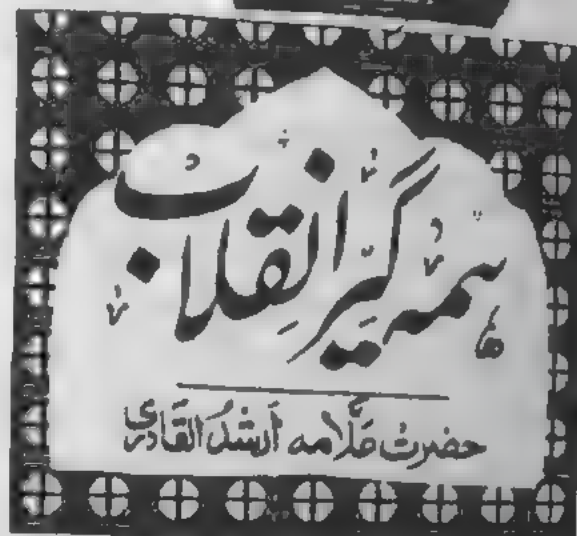 ہمہ گیر انقلاب
حضرت علامہ ارشد القادری